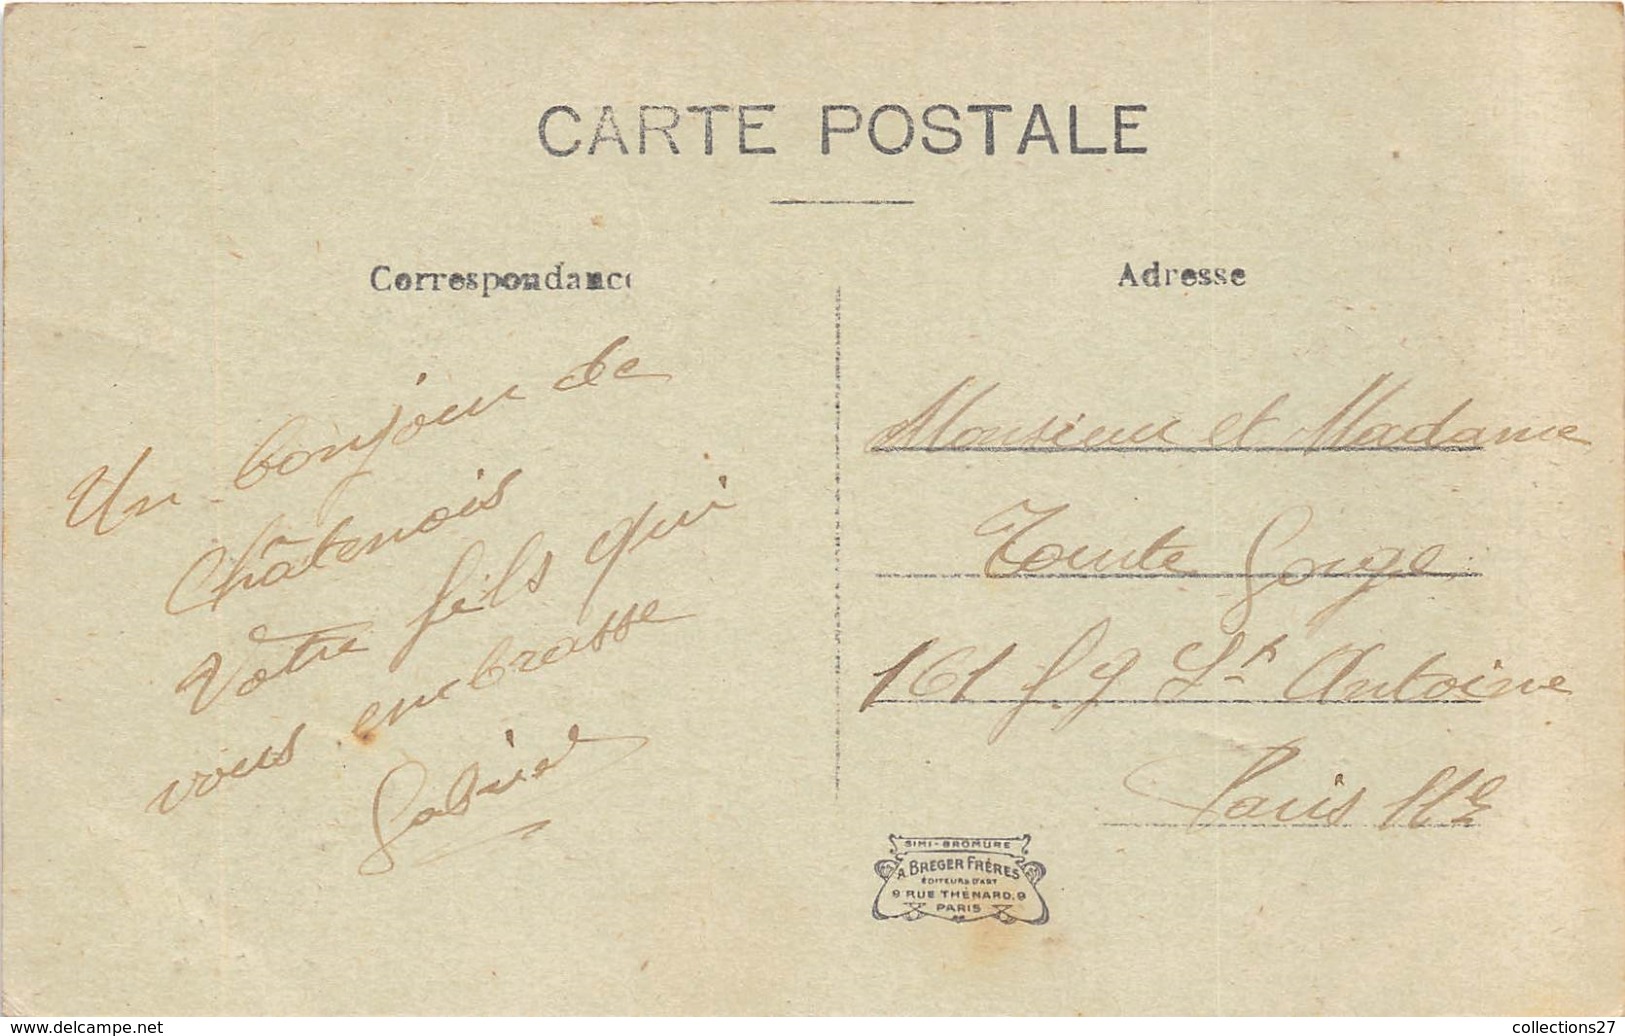 CARTE POSTALE
Correspondance
Un bonjour de
Châtenois
Votre fils qui
vous embrasse
Gabriel
Adresse
Monsieur et Madame
161 f. g St Antoine
Paris 11e
SIMI-BROMURE
A. BREGER FRÈRES
ÉDITEURS D'ART
9 RUE THÉNARD, 9
PARIS
www.delcampe.net
collections27